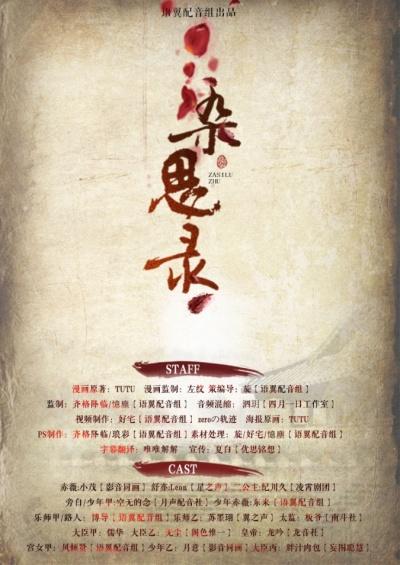 语翼配音组出品
染思录
ZASILU
ZHU
STAFF
漫画原著：TUTU 漫画监制：左纹 策编导：旋【语翼配音组】
监制：齐格降临/憶塵【语翼配音组】 音频混缩：泗玥【四月一日工作室】
视频制作：好宅【语翼配音组】zeroの轨迹 海报原画：TUTU
PS制作：齐格降临/琅彩【语翼配音组】素材处理：旋/好宅/憶塵【语翼配音组】
字幕翻译：唯唯解解 宣传：夏白【优思铭想】
CAST
赤薇:小茂【影音同画】舒亦:Lena【星之声】二公主:纪川久【凌宵剧团】
旁白/少年甲:空无的念【月声配音社】少年赤薇:东来【语翼配音组】
乐师甲/路人：博导【语翼配音组】乐师乙：苏墨琊【翼之声】太监：板爷【南斗社】
大臣甲：儒华 大臣乙：无尘【阁色惟一】皇帝：龙吟【龙音社】
宫女甲：风倾赞【语翼配音组】少年乙：月意【影音同画】大臣丙：胖汁肉包【妄图聪慧】